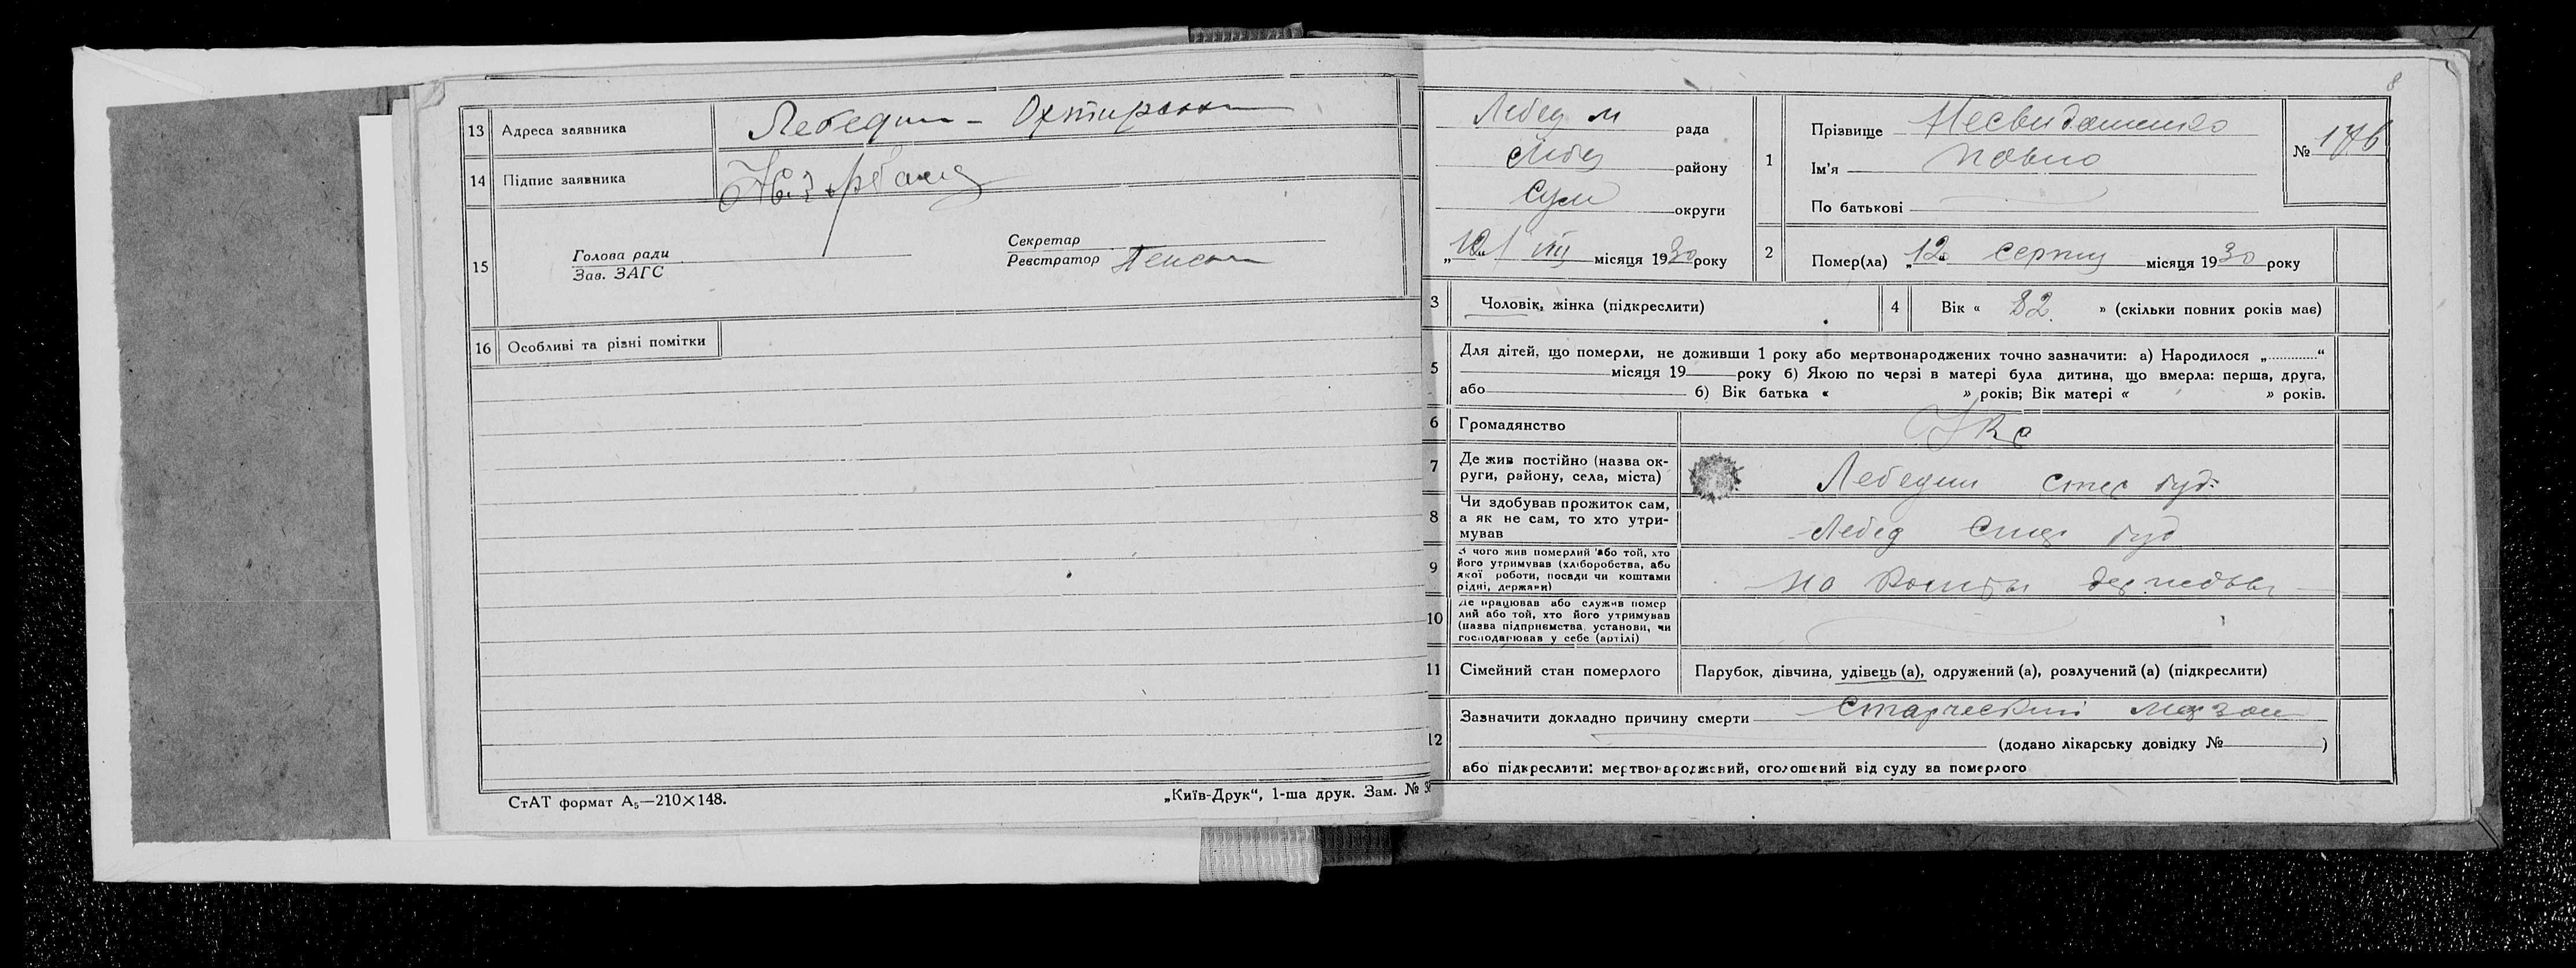 13 Адреса заявника Лебедин - Охтирська
14 Підпис заявника
15
Голова ради
Зав. ЗАГС
Секретар
Реєстратор
16 Особливі та різні помітки
СтАТ формат А₅—210×148.
„Київ-Друк“, 1-ша друк. Зам. №
8
Лебед м рада
Лебед району
Сум округи
„ VIII місяця 1930 року
1 Прізвище
Ім'я Павло
По батькові
№ 176
2 Помер(ла) „12„ серпня місяця 1930 року
3 Чоловік, жінка (підкреслити)
4 Вік « 82 » (скільки повних років має)
5 Для дітей, що померли, не доживши 1 року або мертвонароджених точно зазначити: а) Народилося „............“
місяця 19 року б) Якою по черзі в матері була дитина, що вмерла: перша, друга,
або б) Вік батька « » років; Вік матері « » років.
6 Громадянство Укр
7 Де жив постійно (назва ок-
руги, району, села, міста) Лебедин буд.
8 Чи здобував прожиток сам,
а як не сам, то хто утри-
мував Лебед буд
9 З чого жив померлий або той, хто
його утримував (хліборобства, або
якої роботи, посади чи коштами
рідні, держави) на кошти держави
10 Де працював або служив помер
лий або той, хто його утримував
(назва підприємства, установи, чи
господарював у себе (артілі)
11 Сімейний стан померлого Парубок, дівчина, удівець (а), одружений (а), розлучений (а) (підкреслити)
12 Зазначити докладно причину смерти Старческий
(додано лікарську довідку № )
або підкреслити: мертвонароджений, оголошений від суду за померлого